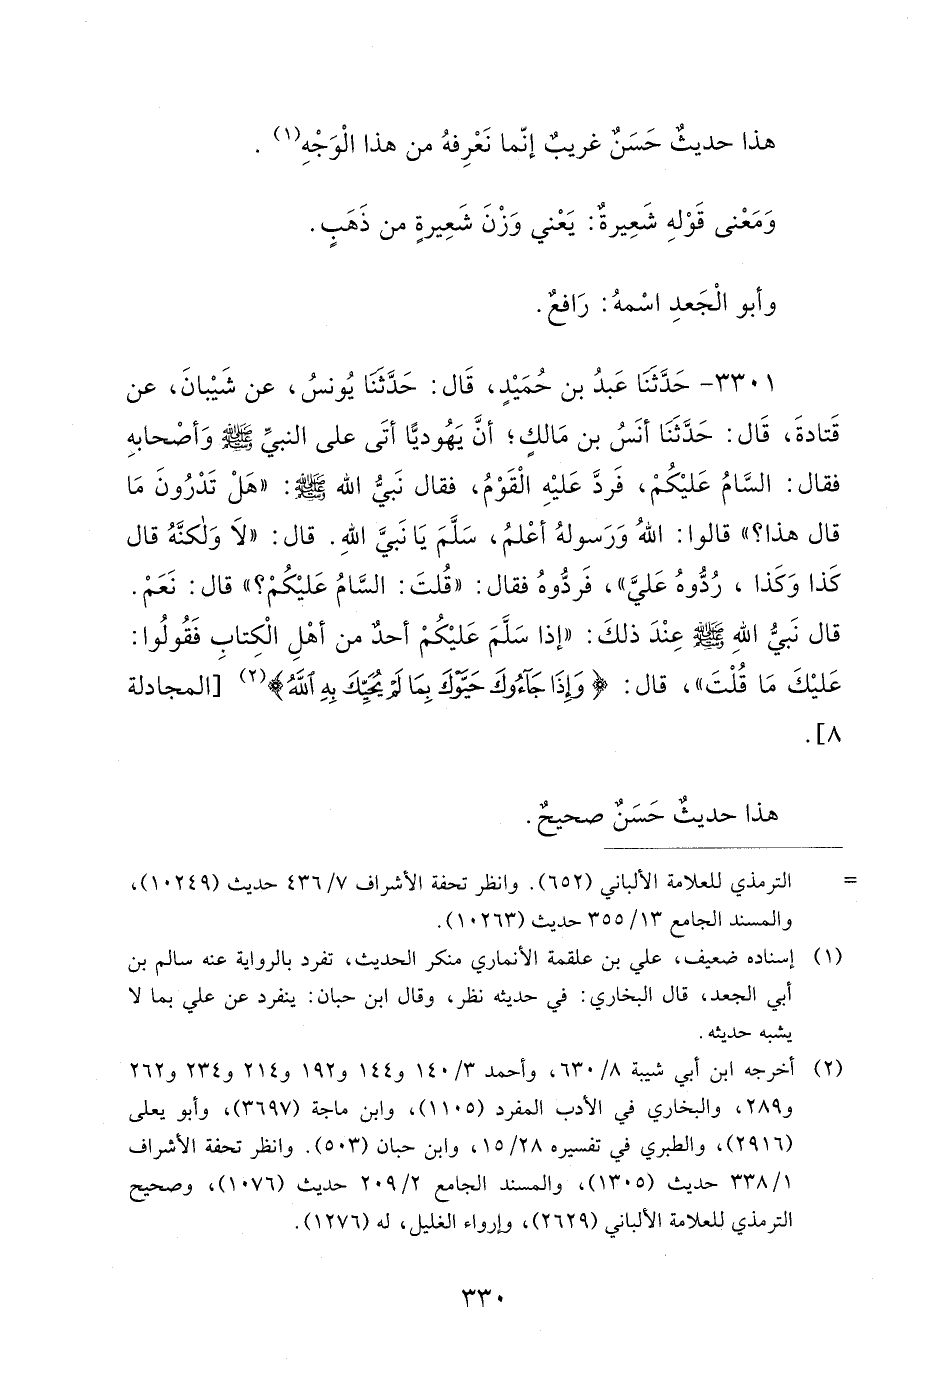 هذا حديثٌ حَسَنٌ غريبٌ إنّما نَعْرِفهُ من هذا الْوَجْهِ(١) .
وَمَعْنى قَوْلهِ شَعِيرةٌ: يَعْني وَزْنَ شَعِيرةٍ من ذَهَبٍ.
وأبو الْجَعدِ اسْمهُ: رَافعٌ.
٣٣٠١- حَدَّثنَا عَبدُ بن حُمَيْدٍ، قَال: حَدَّثنَا يُونسُ، عن شَيْبانَ، عن
قَتادةَ، قَال: حَدَّثنَا أنَسُ بن مَالكٍ؛ أنَّ يَهُوديًّا أتَى على النبيِّ ﷺ وَأصْحابهِ
فقال: السَّامُ عَليْكُمْ، فَردَّ عَليْهِ الْقَوْمُ، فقال نَبيُّ الله ﷺ: «هَلْ تَدْرُونَ مَا
قال هذا؟» قالوا: اللهُ وَرَسولهُ أعْلمُ، سَلَّمَ يَا نَبيَّ اللهِ. قال: «لاَ وَلٰكنَّهُ قال
كَذا وَكَذا ، رُدُّوهُ عَليَّ»، فَردُّوهُ فقال: «قُلتَ: السَّامُ عَليْكُمْ؟» قال: نَعَمْ.
قال نَبيُّ اللهِ ﷺ عِنْدَ ذلكَ: «إذا سَلَّمَ عَليْكُمْ أحدٌ من أهْلِ الْكِتابِ فَقُولُوا:
عَليْكَ مَا قُلْتَ»، قال: ﴿وَإِذَا جَآءُوكَ حَيَّوْكَ بِمَا لَمْ يُحَيِّكَ بِهِ ٱللَّهُ﴾(٢) [المجادلة
٨].
هذا حديثٌ حَسَنٌ صحيحٌ.
= الترمذي للعلامة الألباني (٦٥٢). وانظر تحفة الأشراف ٧/ ٤٣٦ حديث (١٠٢٤٩)،
والمسند الجامع ١٣/ ٣٥٥ حديث (١٠٢٦٣).
(١) إسناده ضعيف، علي بن علقمة الأنماري منكر الحديث، تفرد بالرواية عنه سالم بن
أبي الجعد، قال البخاري: في حديثه نظر، وقال ابن حبان: ينفرد عن علي بما لا
يشبه حديثه.
(٢) أخرجه ابن أبي شيبة ٨/ ٦٣٠، وأحمد ٣/ ١٤٠ و١٤٤ و١٩٢ و٢١٤ و٢٣٤ و٢٦٢
و٢٨٩، والبخاري في الأدب المفرد (١١٠٥)، وابن ماجة (٣٦٩٧)، وأبو يعلى
(٢٩١٦)، والطبري في تفسيره ٢٨/ ١٥، وابن حبان (٥٠٣). وانظر تحفة الأشراف
١/ ٣٣٨ حديث (١٣٠٥)، والمسند الجامع ٢/ ٢٠٩ حديث (١٠٧٦)، وصحيح
الترمذي للعلامة الألباني (٢٦٢٩)، وإرواء الغليل، له (١٢٧٦).
٣٣٠